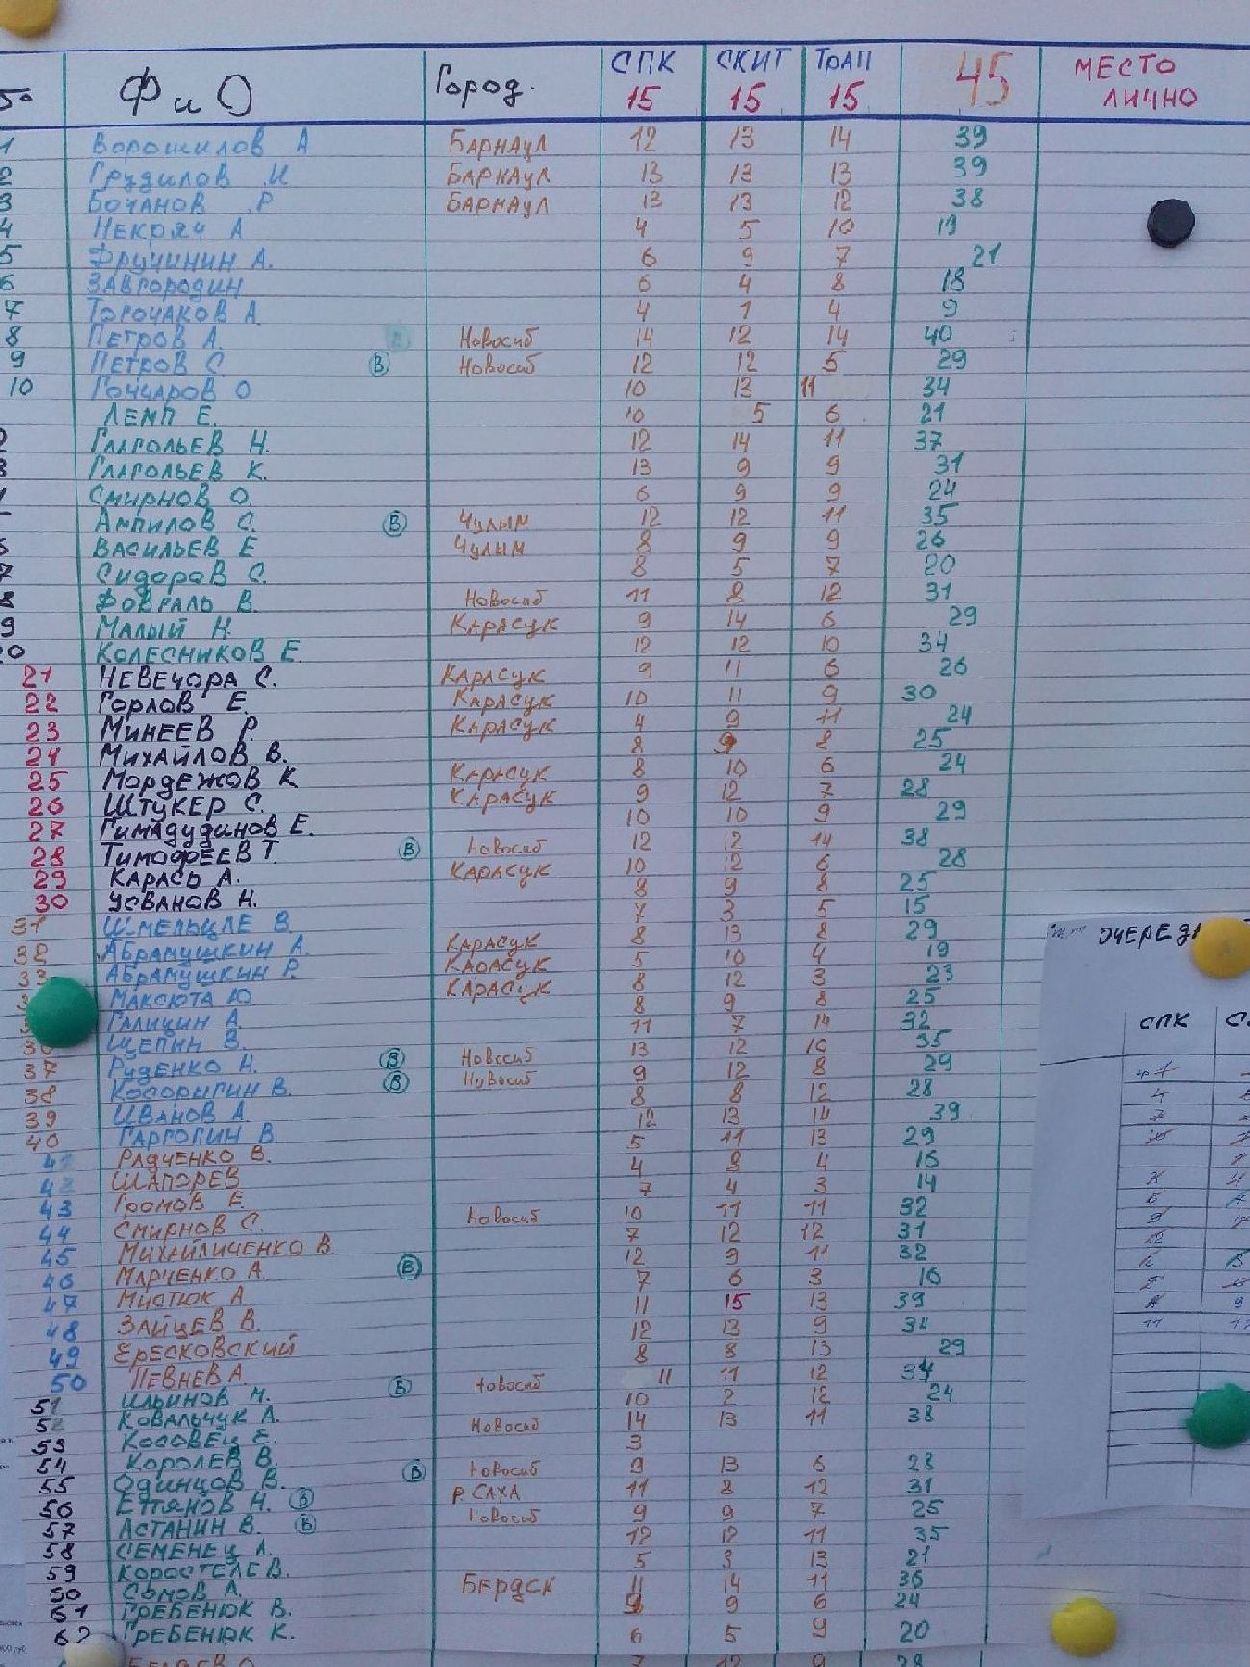 Ф и О Город. СПК СКИТ ТРАП 45 МЕСТО
15 15 15 ЛИЧНО
1 Ворошилов А БАРНАУЛ 12 13 14 39
2 Груздилов И БАРНАУЛ 13 13 13 39
3 БОЧАНОВ Р БАРНАУЛ 13 13 12 38
4 НЕКРЯЧ А 4 5 10 19
5 6 9 7 21
6 ЗАВГОРОДИН 6 4 8 18
7 ТОРОЧАКОВ А 4 1 4 9
8 ПЕТРОВ А. Новосиб 14 12 14 40
9 ПЕТРОВ С В Новосиб 12 12 5 29
10 ГОНЧАРОВ О 10 13 11 34
ЛЕМП Е. 10 5 6 21
ГЛАГОЛЬЕВ Н. 12 14 11 37
ГЛАГОЛЬЕВ К. 13 9 9 31
СМИРНОВ О 6 9 9 24
АМПИЛОВ С. В Чулым 12 12 11 35
ВАСИЛЬЕВ Е Чулым 8 9 9 26
Сидоров С. 8 5 7 20
ФОВРАЛЬ В. Новосиб 11 8 12 31
9 МАЛЫЙ Н. КАРАСУК 9 14 6 29
КОЛЕСНИКОВ Е 12 12 10 34
21 ЧЕВЕЧОРА С. КАРАСУК 9 11 6 26
22 ГОРЛОВ Е КАРАСУК 10 11 9 30
23 МИНЕЕВ Р КАРАСУК 4 9 11 24
24 МИХАЙЛОВ В. 8 9 8 25
25 МОРДЕЖОВ К КАРАСУК 8 10 6 24
26 ШТУКЕР С. КАРАСУК 9 12 7 28
27 ГИМАДУДИНОВ Е. 10 10 9 29
28 ТИМОФЕЕВ Т В Новосиб 12 12 14 38
29 КАРАСЬ А. КАРАСУК 10 12 6 28
30 УСВАНОВ Н. 8 9 8 25
31 ШМЕЛЬЦЛЕ В 7 3 5 15
32 АБРАМУШКИН А. КАРАСУК 8 13 8 29
33 АБРАМУШКИН Р КАРАСУК 5 10 4 19
МАКСЮТА Ю КАРАСУК 8 12 3 23
ГАЛИЦИН А 8 9 8 25
36 ЩЕПИН В. 11 7 14 32
37 РУДЕНКО Н. В Новосиб 13 12 10 35
38 КОСОРЫГИН В. В Новосиб 9 12 8 29
39 ИВАНОВ А 8 8 12 28
40 ГАРГОГИН В 12 13 14 39
РАДЧЕНКО В. 5 11 13 29
42 ШАПОРЕВ 4 8 4 16
43 ГРОМОВ Е. 7 4 3 14
44 СМИРНОВ С. Новосиб 10 11 11 32
45 МИХАЙЛИЧЕНКО В 7 12 12 31
46 МАРЧЕНКО А В 12 9 11 32
47 МИСТЮК А 7 6 3 16
48 ЗАЙЦЕВ В. 11 15 13 39
49 ЕРЕСКОВСКИЙ 12 13 9 34
50 ПЕВНЕВ А 8 8 13 29
51 ИЛЬИНОВ Н. В Новосиб 11 11 12 34
52 КОВАЛЬЧУК А. 10 2 12 24
53 КОСОВЕЦ Е. Новосиб 14 13 11 38
54 КОРОЛЕВ В. 3
55 ОДИНЦОВ В. В Новосиб 9 13 6 28
56 ЕТТЯНОВ Н. В р. САХА 11 8 12 31
57 АСТАНИН В. В Новосиб 9 9 7 25
58 СЕМЕНЕЦ А. 12 12 11 35
59 КОРОСТЕЛЕВ В. 5 3 13 21
60 СОМОВ А. БЕРДСК 11 14 11 36
61 ГРЕБЕНЮК В. 9 9 6 24
62 ГРЕБЕНЮК К. 6 5 9 20
БЕЛЯЕВ О 7 12 9 28
ОЧЕРЕД
СПК